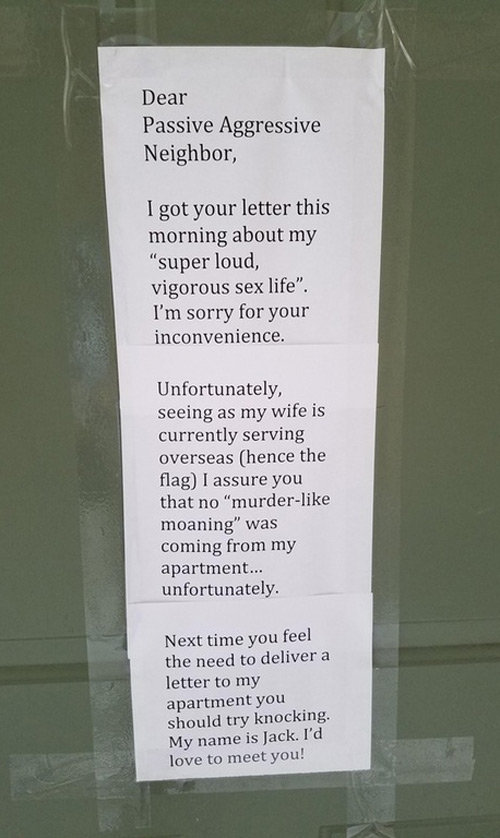 Dear
Passive Aggressive
Neighbor,
I got your letter this
morning about my
“super loud,
vigorous sex life”.
I’m sorry for your
inconvenience.
Unfortunately,
seeing as my wife is
currently serving
overseas (hence the
flag) I assure you
that no “murder-like
moaning” was
coming from my
apartment...
unfortunately.
Next time you feel
the need to deliver a
letter to my
apartment you
should try knocking.
My name is Jack. I’d
love to meet you!